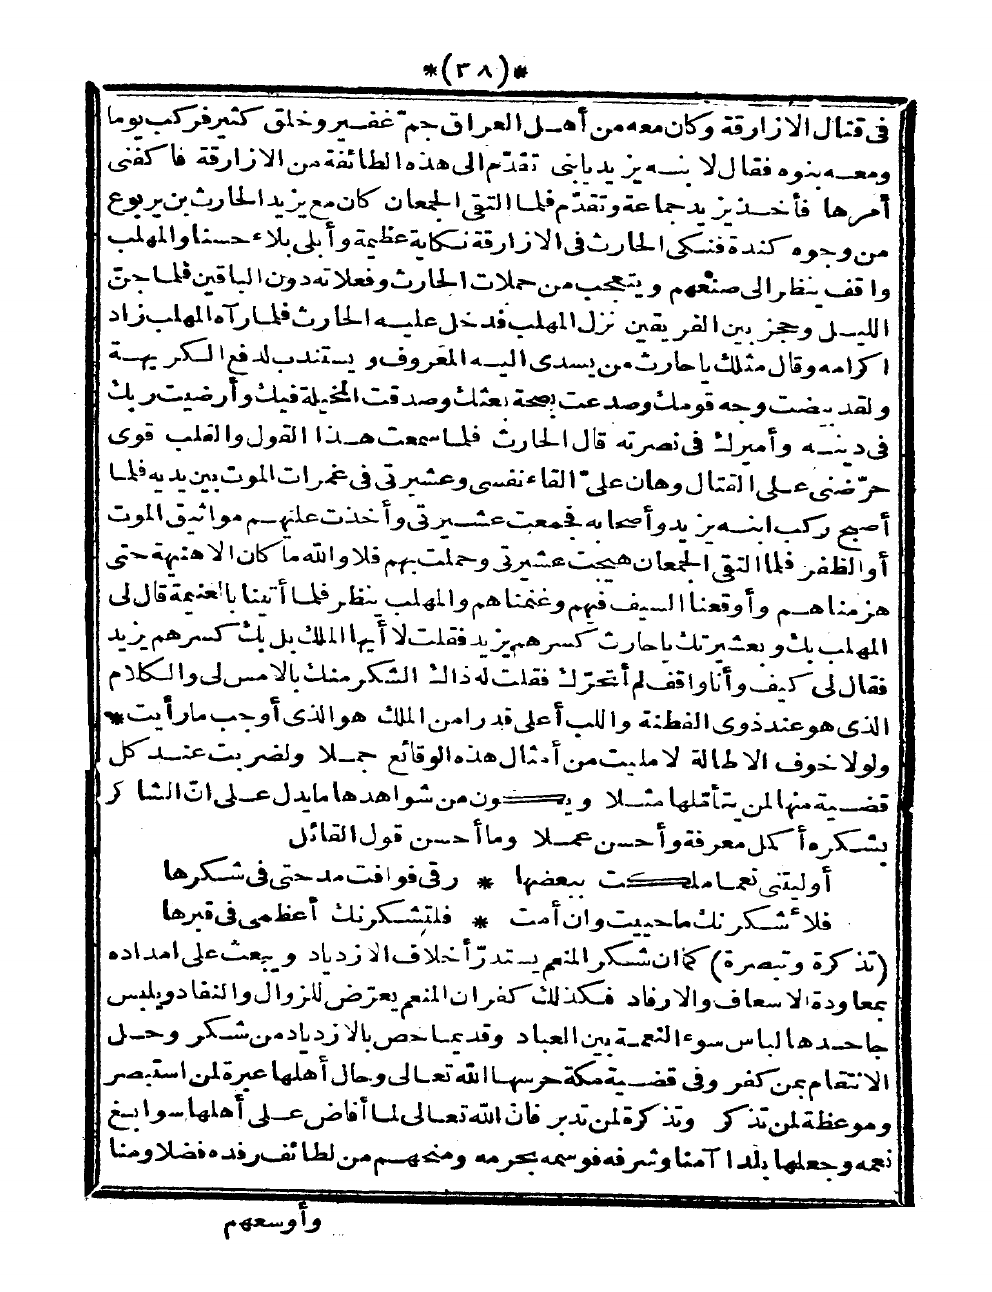 *(٣٨)*
فى قتال الازارقة وكان معه من أهل العراق جم غفير وخلق كثير فركب يوما
ومعه بنوه فقال لابنه يزيد يابنى تقدّم الى هذه الطائفة من الازارقة فاكفنى
أمرها فأخذ يزيد جماعة وتقدّم فلما التقى الجمعان كان مع يزيد الحارث بن يربوع
من وجوه كندة فنكى الحارث فى الازارقة نكاية عظيمة وأبلى بلاء حسنا والمهلب
واقف ينظر الى صنعهم ويتعجب من حملات الحارث وفعلاته دون الباقين فلما جنّ
الليل وحجز بين الفريقين نزل المهلب فدخل عليه الحارث فلما رآه المهلب زاد
اكرامه وقال مثلك ياحارث من يسدى اليه المعروف ويستندب لدفع الكريهة
ولقد بيضت وجه قومك وصدعت بصحة بعثك وصدقت المخيلة فيك وأرضيت ربك
فى دينه وأميرك فى نصرته قال الحارث فلما سمعت هذا القول والقلب قوى
حرّضنى على القتال وهان علىّ القاء نفسى وعشيرتى فى غمرات الموت بين يديه فلما
أصبح ركب ابنه يزيد وأصحابه فجمعت عشيرتى وأخذت عليهم مواثيق الموت
أو الظفر فلما التقى الجمعان هيجت عشيرتى وحملت بهم فلا والله ما كان الا هنيهة حتى
هزمناهم وأوقعنا السيف فيهم وغنمناهم والمهلب ينظر فلما أتينا بالغنيمة قال لى
المهلب بك وبعشيرتك ياحارث كسرهم يزيد فقلت لا أيها الملك بل بك كسرهم يزيد
فقال لى كيف وأنا واقف لم أتحرّك فقلت له ذاك الشكر منك بالامس لى والكلام
الذى هو عند ذوى الفطنة واللب أعلى قدرا من الملك هو الذى أوجب ما رأيت *
ولولا خوف الاطالة لامليت من أمثال هذه الوقائع جملا ولضربت عند كل
قضية منها لمن يتأملها مثلا ويكون من شواهدها ما يدل على انّ الشاكر
بشكره أكمل معرفة وأحسن عملا وما أحسن قول القائل
أوليتنى نعما ملكت ببعضها * رقى فوافت مدحتى فى شكرها
فلأشكرنك ما حييت وان أمت * فلتشكرنك أعظمى فى قبرها
(تذكرة وتبصرة) كما ان شكر المنعم يستدرّ أخلاف الازدياد ويبعث على امداده
بمعاودة الاسعاف والارفاد فكذلك كفران المنعم يعرّض للزوال والنفاد ويلبس
جاحدها لباس سوء النعمة بين العباد وقديما خص بالازدياد من شكر وحل
الانتقام بمن كفر وفى قضية مكة حرسها الله تعالى وحال أهلها عبرة لمن استبصر
وموعظة لمن تذكر وتذكرة لمن تدبر فانّ الله تعالى لما أفاض على أهلها سوابغ
نعمه وجعلها بلدا آمنا وشرفه فوسمه بحرمه ومنحهم من لطائف رفده فضلا ومنا
وأوسعهم